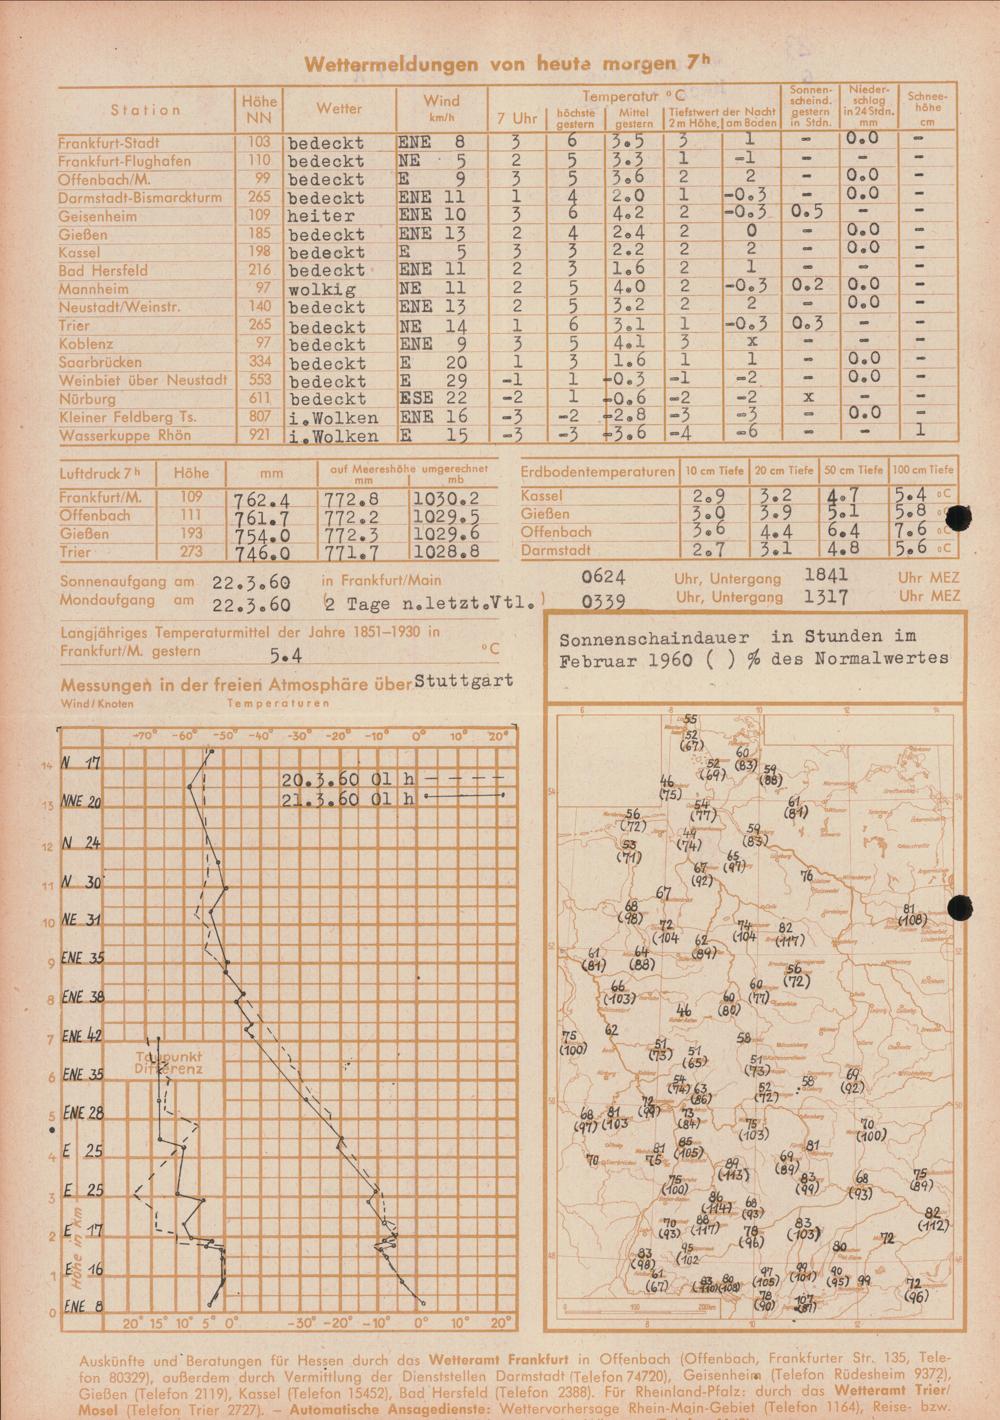 Wettermeldungen von heute morgen 7h
Station Höhe NN Wetter Wind km/h Temperatur °C Sonnen-scheind. gestern in Stdn. Nieder-schlag in 24 Stdn. mm Schnee-höhe cm
7 Uhr höchste gestern Mittel gestern Tiefstwert der Nacht 2 m Höhe am Boden
Frankfurt-Stadt 103 bedeckt ENE 8 3 6 3.5 3 1 - 0.0 -
Frankfurt-Flughafen 110 bedeckt NE 5 2 5 3.3 1 -1 - - -
Offenbach/M. 99 bedeckt E 9 3 5 3.6 2 2 - 0.0 -
Darmstadt-Bismarckturm 265 bedeckt ENE 11 1 4 2.0 1 -0.3 - 0.0 -
Geisenheim 109 heiter ENE 10 3 6 4.2 2 -0.3 0.5 - -
Gießen 185 bedeckt ENE 13 2 4 2.4 2 0 - 0.0 -
Kassel 198 bedeckt E 5 3 3 2.2 2 2 - 0.0 -
Bad Hersfeld 216 bedeckt ENE 11 2 3 1.6 2 1 - - -
Mannheim 97 wolkig NE 11 2 5 4.0 2 -0.3 0.2 0.0 -
Neustadt/Weinstr. 140 bedeckt ENE 13 2 5 3.2 2 2 - 0.0 -
Trier 265 bedeckt NE 14 1 6 3.1 1 -0.3 0.3 - -
Koblenz 97 bedeckt ENE 9 3 5 4.1 3 x - - -
Saarbrücken 334 bedeckt E 20 1 3 1.6 1 1 - 0.0 -
Weinbiet über Neustadt 553 bedeckt E 29 -1 1 -0.3 -1 -2 - 0.0 -
Nürburg 611 bedeckt ESE 22 -2 1 -0.6 -2 -2 x - -
Kleiner Feldberg Ts. 807 i.Wolken ENE 16 -3 -2 -2.8 -3 -3 - 0.0 -
Wasserkuppe Rhön 921 i.Wolken E 15 -3 -3 -3.6 -4 -6 - - 1
Luftdruck 7h Höhe mm auf Meereshöhe umgerechnet mm mb
Frankfurt/M. 109 762.4 772.8 1030.2
Offenbach 111 761.7 772.2 1029.5
Gießen 193 754.0 772.3 1029.6
Trier 273 746.0 771.7 1028.8
Erdbodentemperaturen 10 cm Tiefe 20 cm Tiefe 50 cm Tiefe 100 cm Tiefe
Kassel 2.9 3.2 4.7 5.4 °C
Gießen 3.0 3.9 5.1 5.8 °C
Offenbach 3.6 4.4 6.4 7.6 °C
Darmstadt 2.7 3.1 4.8 5.6 °C
Sonnenaufgang am 22.3.60 in Frankfurt/Main 0624 Uhr, Untergang 1841 Uhr MEZ
Mondaufgang am 22.3.60 (2 Tage n.letzt.Vtl.) 0339 Uhr, Untergang 1317 Uhr MEZ
Langjähriges Temperaturmittel der Jahre 1851–1930 in
Frankfurt/M. gestern 5.4 °C
Messungen in der freien Atmosphäre über Stuttgart
Wind/Knoten Temperaturen
-70° -60° -50° -40° -30° -20° -10° 0° 10° 20°
20.3.60 01 h
21.3.60 01 h
14 N 17
13 NNE 20
12 N 24
11 N 30
10 NE 31
9 ENE 35
8 ENE 38
7 ENE 42
Taupunkt
Differenz
6 ENE 35
5 ENE 28
4 E 25
3 E 25
2 E 17
1 E 16
0 ENE 8
Höhe in Km
20° 15° 10° 5° 0° -30° -20° -10° 0° 10° 20°
Sonnenschaindauer in Stunden im
Februar 1960 ( ) % des Normalwertes
55
52 (67)
60 (83)
52 (69)
59 (88)
46 (75)
54 (77)
61 (81)
56 (72)
49 (74)
59 (83)
53 (71)
65 (97)
67 (92)
76
67
68 (98)
81 (108)
72 (104
74 (104
82 (117)
62 (89)
61 (81)
64 (88)
56 (72)
66 (103)
60 (77)
60 (80)
46
75 (100)
62
58
51 (73)
51 (65)
51 (73)
54 (74)
63 (86)
52 (72)
58
69 (92)
68 (97)
81 (103
73 (84)
75 (103)
70 (100)
70
81
75
85 (105)
81
89 (113)
69 (89)
75 (100)
83 (99)
68 (93)
75 (89)
86 (114)
68 (93)
82 (112)
70 (93)
88 (117)
78 (96)
83 (103)
72
80
83 (98)
95 (102
61 (67)
97 (105)
99 (101)
90 (95)
99
72 (96)
78 (90)
107
0 100 200km
Auskünfte und Beratungen für Hessen durch das Wetteramt Frankfurt in Offenbach (Offenbach, Frankfurter Str. 135, Tele-
fon 80329), außerdem durch Vermittlung der Dienststellen Darmstadt (Telefon 74720), Geisenheim (Telefon Rüdesheim 9372),
Gießen (Telefon 2119), Kassel (Telefon 15452), Bad Hersfeld (Telefon 2388). Für Rheinland-Pfalz: durch das Wetteramt Trier/
Mosel (Telefon Trier 2727). – Automatische Ansagedienste: Wettervorhersage Rhein-Main-Gebiet (Telefon 1164), Reise- bzw.